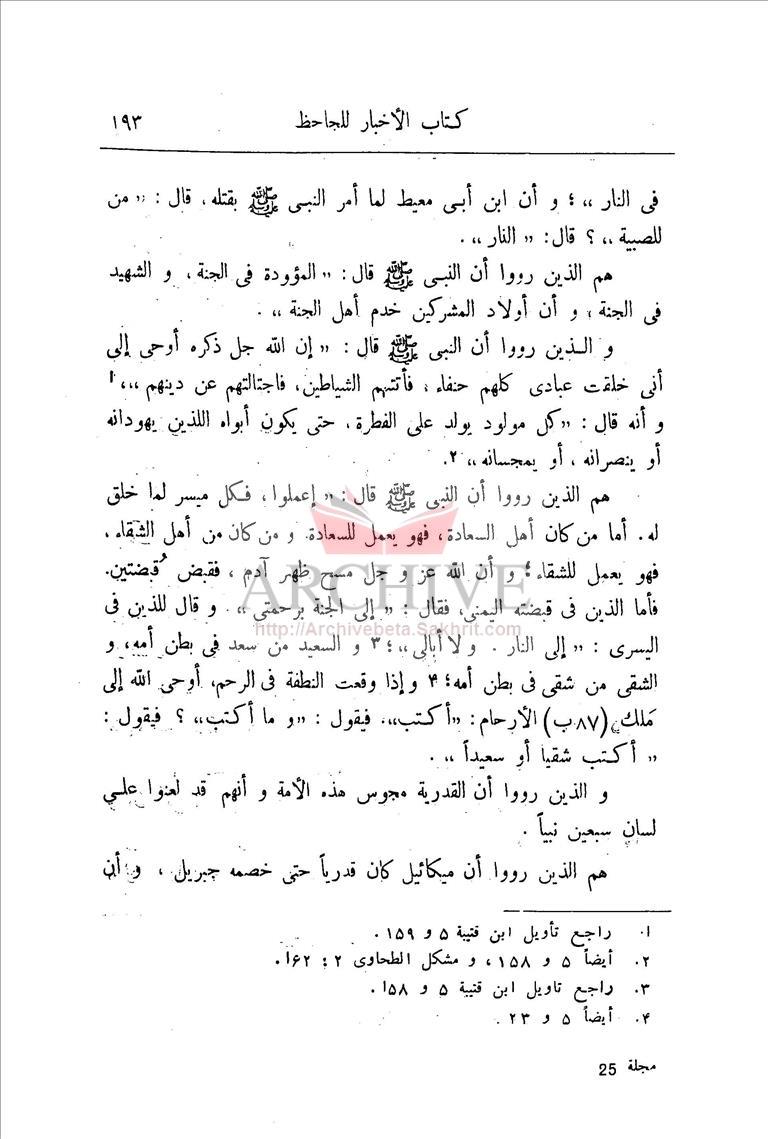 كتاب الأخبار للجاحظ ١٩٣
فى النار ،، ؛ و أن ابن أبى معيط لما أمر النبى ﷺ بقتله، قال : ,, من
للصبية ،، ؟ قال: ,, النار ،، .
هم الذين رووا أن النبى ﷺ قال: ,, المؤودة فى الجنة ، و الشهيد
فى الجنة ، و أن أولاد المشركين خدم أهل الجنة ،، .
و الذين رووا أن النبى ﷺ قال : ,, إن الله جل ذكره أوحى إلى
أنى خلقت عبادى كلهم حنفاء ، فأتتهم الشياطين، فاجتالتهم عن دينهم ،،،١
و أنه قال : ,,كل مولود يولد على الفطرة ، حتى يكون أبواه اللذين يهودانه
أو ينصرانه ، أو يمجسانه ،، ٢.
هم الذين رووا أن النبى ﷺ قال : ,, إعملوا ، فكل ميسر لما خلق
له. أما من كان أهل السعادة، فهو يعمل للسعادة. و من كان من أهل الشقاء ،
فهو يعمل للشقاء ؛ و أن الله عز و جل مسح ظهر آدم ، فقبض قُبضتين.
فأما الذين فى قبضته اليمنى، فقال : ,, إلى الجنة برحمتى ،، . و قال للذين فى
اليسرى : ,, إلى النار . ولا أبالى ،، ؛ ٣ و السعيد من سعد فى بطن أمه، و
الشقى من شقى فى بطن أمه؛ ۴ و إذا وقعت النطفة فى الرحم، أوحى الله إلى
مَلك (٨٧ب) الأرحام: ,,أكتب،،. فيقول : ,,و ما أكتب،، ؟ فيقول :
,, أكتب شقيا أو سعيداً ،، .
و الذين رووا أن القدرية مجوس هذه الأمة و أنهم قد لعنوا على
لسان سبعين نبياً .
هم الذين رووا أن ميكائيل كان قدرياً حتى خصمه جبريل ، و أن
١. راجع تأويل ابن قتيبة ۵ و ١۵٩ .
٢. أيضاً ۵ و ١۵٨ ، و مشكل الطحاوى ٢ : ١۶٢ .
٣. راجع تاويل ابن قتيبة ۵ و ١۵٨ .
۴. أيضاً ۵ و ٢٣ .
مجلة 25
ARCHIVE
http://Archivebeta.Sakhrit.com